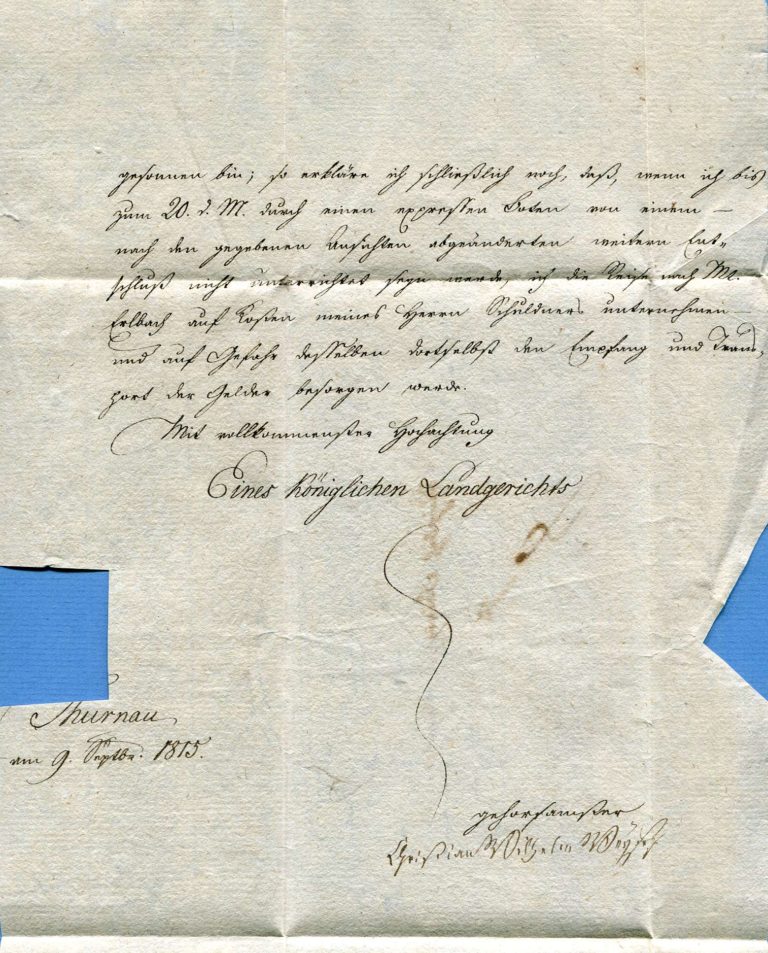 gesonnen bin; so erkläre ich schließlich noch, daß, wenn ich bis
zum 20. d. M. durch einen expressen Boten von einem —
nach den gegebenen Ansichten abgeänderten weitern Ent=
schluß nicht unterrichtet seyn werde, ich die Reise nach Mk.
Erlbach auf Kosten meines Herrn Schuldners unternehmen —
und auf Gefahr desselben dortselbst den Empfang und Trans=
port der Gelder besorgen werde.
Mit vollkommenster Hochachtung
Eines Königlichen Landgerichts
Thurnau
am 9. Septbr. 1815.
gehorsamster
Christian Wilhelm